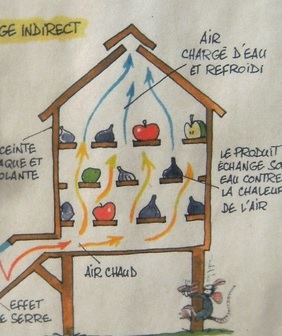 GE INDIRECT
AIR
CHARGÉ D'EAU
ET REFROIDI
CEINTE
AQUE ET
OLANTE
LE PRODUIT
ÉCHANGE SON
EAU CONTRE
LA CHALEUR
DE L'AIR
AIR CHAUD
EFFET
E SERRE